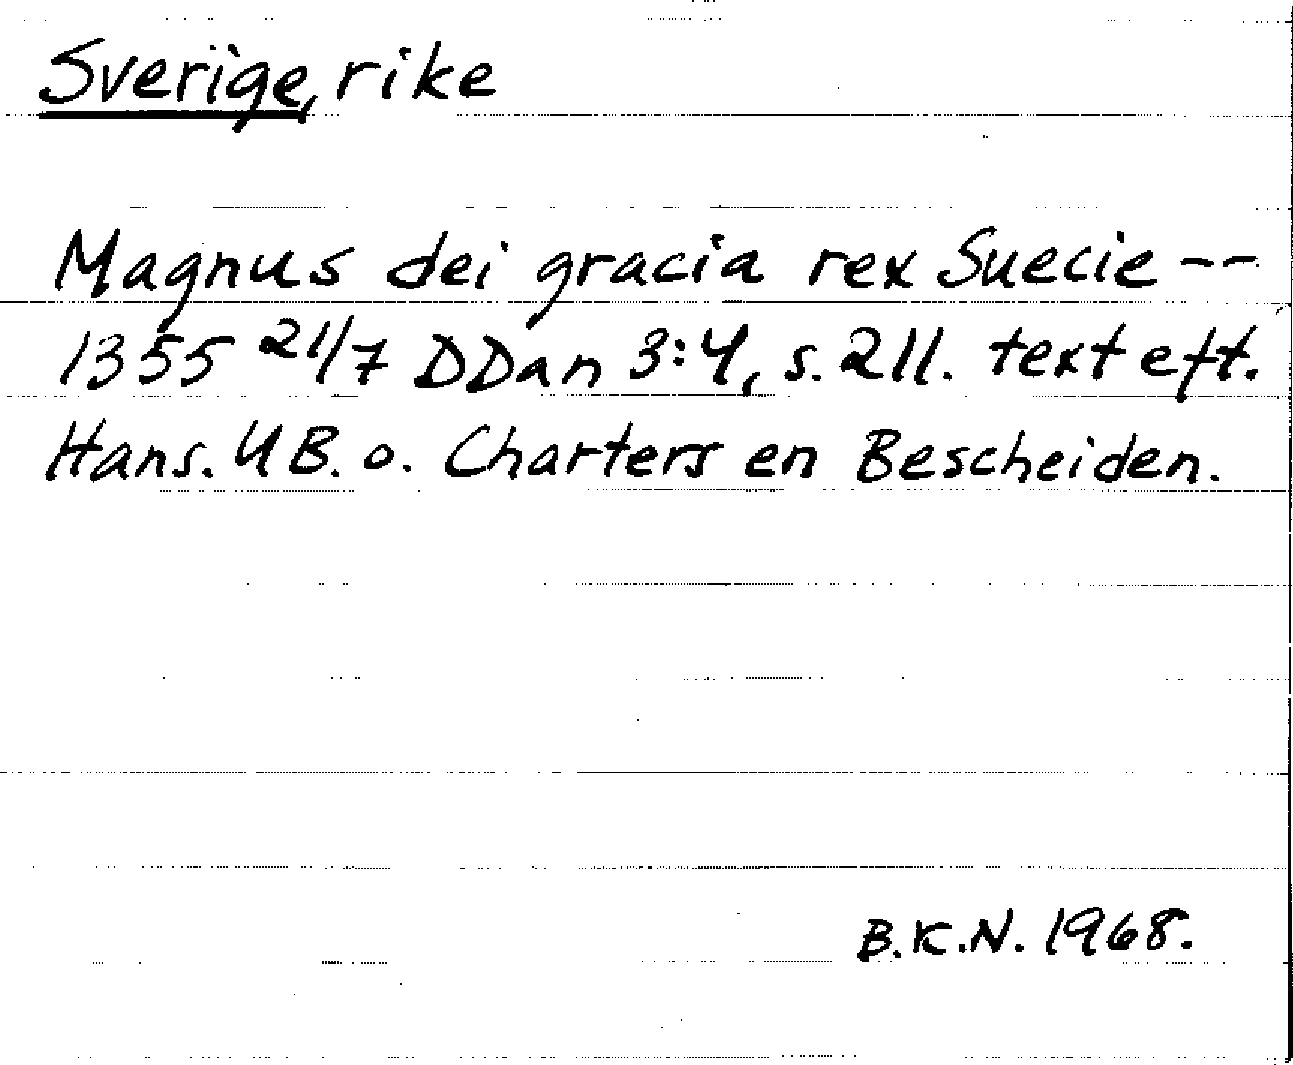 Sverige, rike
Magnus dei gracia rex Suecie --
1355 21/7 DDan 3:4, s. 211. text eft.
Hans. UB. o. Charters en Bescheiden.
B.K.N. 1968.